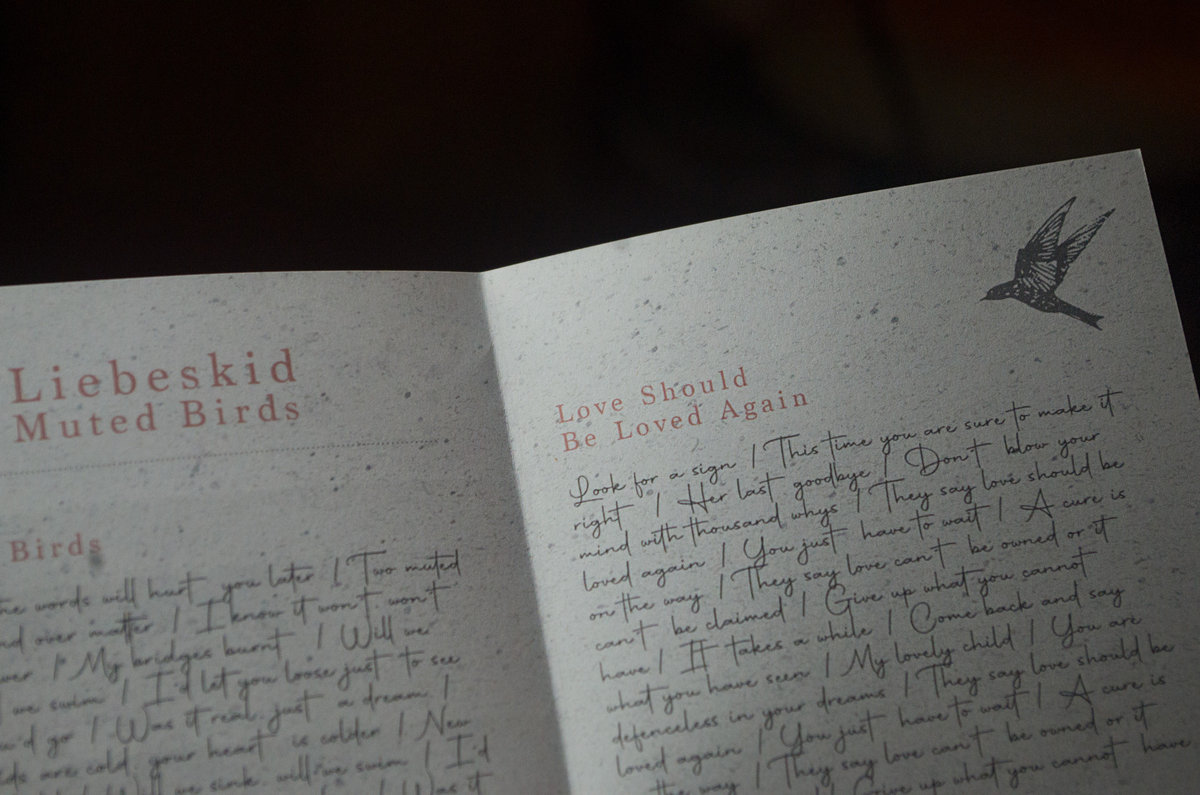 Liebeskid
Muted Birds
Birds
words will hurt you later / Two muted
over matter / I know it won't won't
/ My bridges burnt / Will we
we swim / I'd let you loose just to see
go / Was it real just a dream /
are cold your heart is colder / New
we sink will we swim / I'd
Was it
Love Should
Be Loved Again
Look for a sign / This time you are sure to make it
right / Her last goodbye / Don't blow your
mind with thousand whys / They say love should be
loved again / You just have to wait / A cure is
on the way / They say love can't be owned or it
can't be claimed / Give up what you cannot
have / It takes a while / Come back and say
what you have seen / My lovely child / You are
defenceless in your dreams / They say love should be
loved again / You just have to wait / A cure is
the way / They say love can't be owned or it
Give up what you cannot have